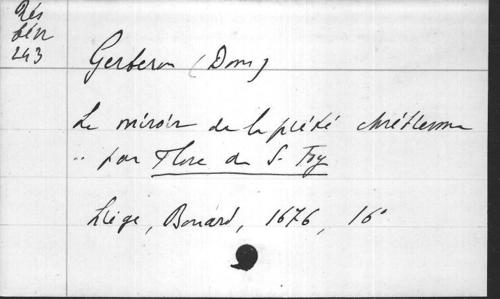 Rés
243
Gerberon (Dom)
Le miroir de la piété chrétienne
.. par Flore de S. Foy
Liège, Bonard, 1676, 16°